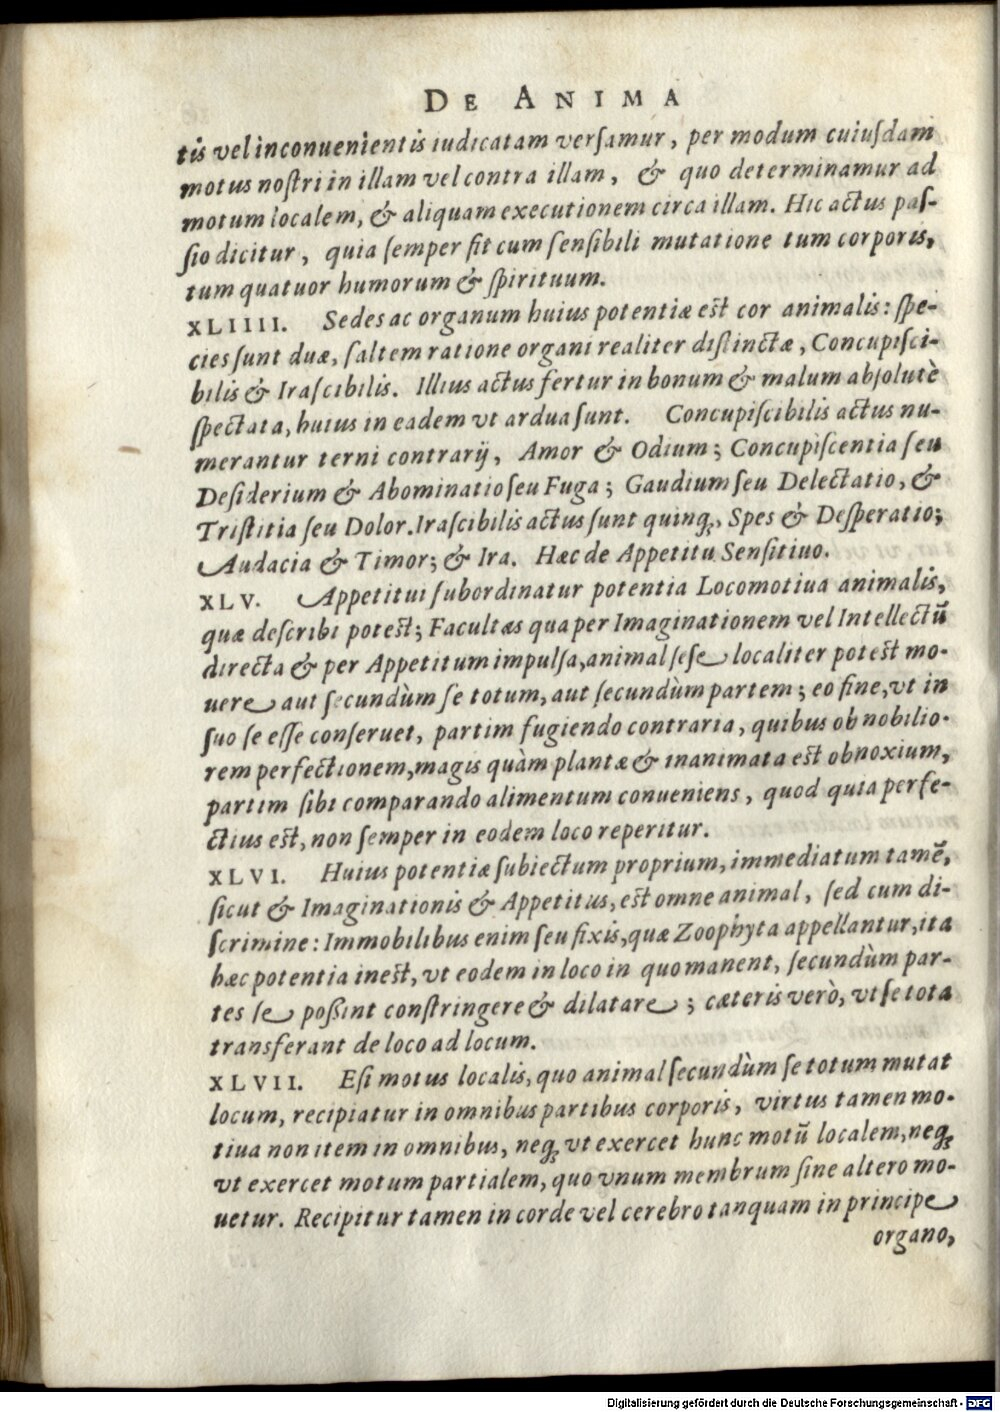 DE ANIMA
tis vel inconuenientis iudicatam versamur, per modum cuiusdam
motus nostri in illam vel contra illam, & quo determinamur ad
motum localem, & aliquam executionem circa illam. Hic actus pas-
sio dicitur, quia semper fit cum sensibili mutatione tum corporis,
tum quatuor humorum & spirituum.
XLIIII. Sedes ac organum huius potentiæ est cor animalis: spe-
cies sunt duæ, saltem ratione organi realiter distinctæ, Concupisci-
bilis & Irascibilis. Illius actus fertur in bonum & malum absolutè
spectata, huius in eadem vt ardua sunt. Concupiscibilis actus nu-
merantur terni contrarij, Amor & Odium; Concupiscentia seu
Desiderium & Abominatio seu Fuga; Gaudium seu Delectatio, &
Tristitia seu Dolor. Irascibilis actus sunt quinq;, Spes & Desperatio;
Audacia & Timor; & Ira. Hæc de Appetitu Sensitiuo.
XLV. Appetitui subordinatur potentia Locomotiua animalis,
quæ describi potest; Facultas qua per Imaginationem vel Intellectū
directa & per Appetitum impulsa, animal sese localiter potest mo-
uere aut secundùm se totum, aut secundùm partem; eo fine, vt in
suo se esse conseruet, partim fugiendo contraria, quibus ob nobilio-
rem perfectionem, magis quàm plantæ & inanimata est obnoxium,
partim sibi comparando alimentum conueniens, quod quia perfe-
ctius est, non semper in eodem loco reperitur.
XLVI. Huius potentiæ subiectum proprium, immediatum tamē,
sicut & Imaginationis & Appetitus, est omne animal, sed cum di-
scrimine: Immobilibus enim seu fixis, quæ Zoophyta appellantur, ita
hæc potentia inest, vt eodem in loco in quo manent, secundùm par-
tes se possint constringere & dilatare; cæteris verò, vt se tota
transferant de loco ad locum.
XLVII. Esi motus localis, quo animal secundùm se totum mutat
locum, recipiatur in omnibus partibus corporis, virtus tamen mo-
tiua non item in omnibus, neq; vt exercet hunc motū localem, neq;
vt exercet motum partialem, quo vnum membrum sine altero mo-
uetur. Recipitur tamen in corde vel cerebro tanquam in principe
organo,
Digitalisierung gefördert durch die Deutsche Forschungsgemeinschaft - DFG